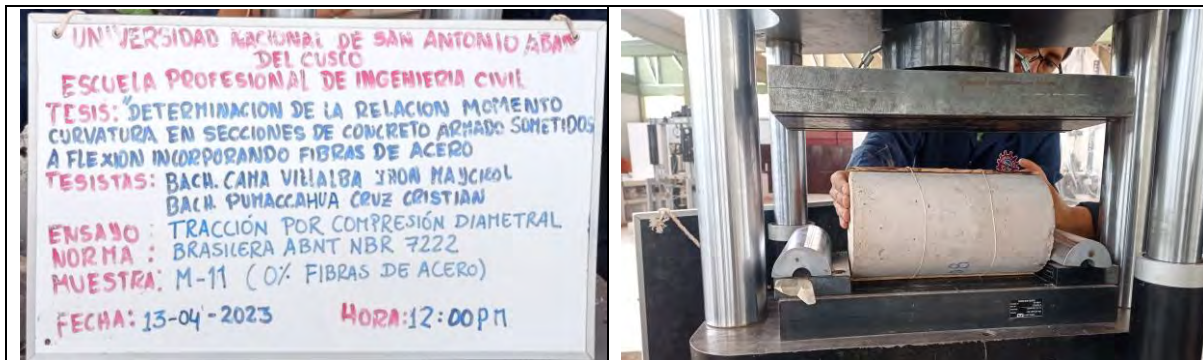 UNIVERSIDAD NACIONAL DE SAN ANTONIO ABAD
DEL CUSCO
ESCUELA PROFESIONAL DE INGENIERIA CIVIL
TESIS: "DETERMINACION DE LA RELACION MOMENTO
CURVATURA EN SECCIONES DE CONCRETO ARMADO SOMETIDOS
A FLEXION INCORPORANDO FIBRAS DE ACERO
TESISTAS: BACH. CAMA VILLALBA JHON MAYCKOL
BACH. PUMACCAHUA CRUZ CRISTIAN
ENSAYO : TRACCIÓN POR COMPRESIÓN DIAMETRAL
NORMA : BRASILERA ABNT NBR 7222
MUESTRA: M-11 (0% FIBRAS DE ACERO)
FECHA: 13-04-2023 HORA: 12:00 PM